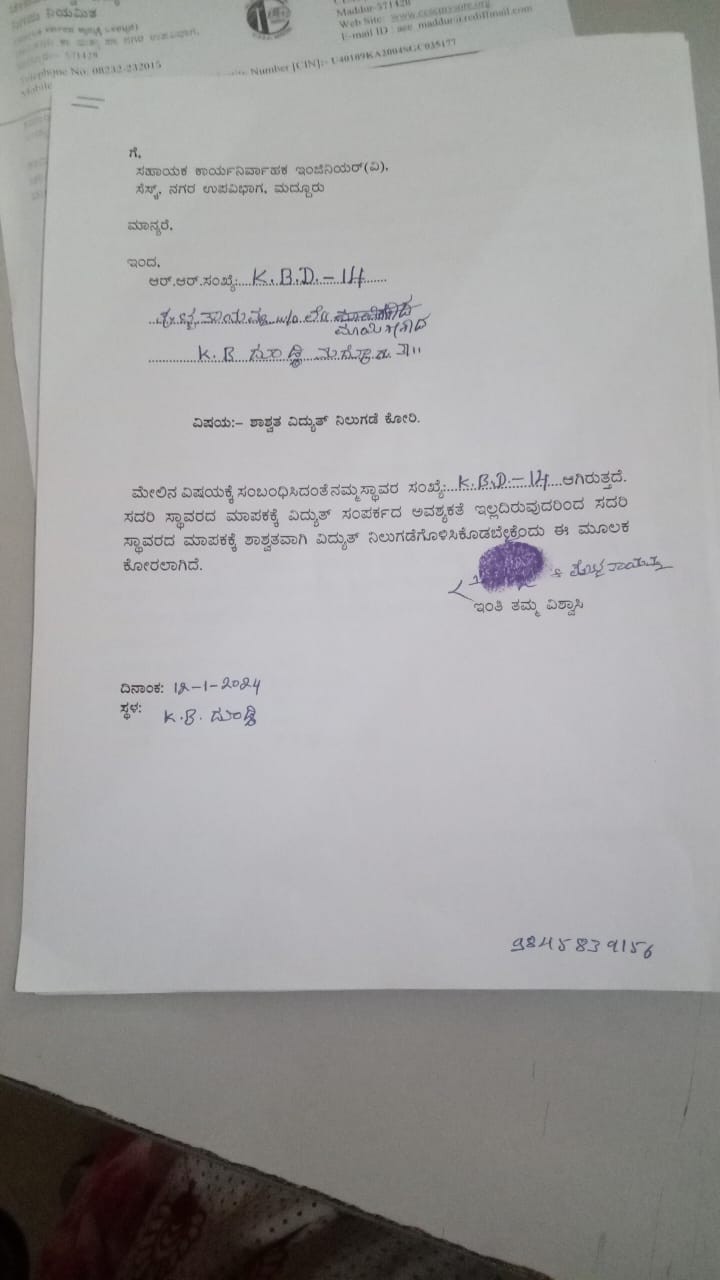 ನಿಯಮಿತ
Maddur-571428
Web Site: www.cescmysore.org
E-mail ID : aee_maddur@rediffmail.com
571428
Telephone No: 08232-232015
Number [CIN]:- U40109KA2004SGC035177
Mobile
ಗೆ,
ಸಹಾಯಕ ಕಾರ್ಯನಿರ್ವಾಹಕ ಇಂಜಿನಿಯರ್(ವಿ),
ಸೆಸ್ಕ್, ನಗರ ಉಪವಿಭಾಗ, ಮದ್ದೂರು
ಮಾನ್ಯರೆ,
ಇಂದ,
ಆರ್.ಆರ್.ಸಂಖ್ಯೆ:....K.B.D.-14......
w/o ಲೇ||
K.B ದೊಡ್ಡಿ
ವಿಷಯ:- ಶಾಶ್ವತ ವಿದ್ಯುತ್ ನಿಲುಗಡೆ ಕೋರಿ.
ಮೇಲಿನ ವಿಷಯಕ್ಕೆ ಸಂಬಂಧಿಸಿದಂತೆ ನಮ್ಮ ಸ್ಥಾವರ ಸಂಖ್ಯೆ:...K.B.D.-14...ಆಗಿರುತ್ತದೆ.
ಸದರಿ ಸ್ಥಾವರದ ಮಾಪಕಕ್ಕೆ ವಿದ್ಯುತ್ ಸಂಪರ್ಕದ ಅವಶ್ಯಕತೆ ಇಲ್ಲದಿರುವುದರಿಂದ ಸದರಿ
ಸ್ಥಾವರದ ಮಾಪಕಕ್ಕೆ ಶಾಶ್ವತವಾಗಿ ವಿದ್ಯುತ್ ನಿಲುಗಡೆಗೊಳಿಸಿಕೊಡಬೇಕೆಂದು ಈ ಮೂಲಕ
ಕೋರಲಾಗಿದೆ.
ಇಂತಿ ತಮ್ಮ ವಿಶ್ವಾಸಿ
ದಿನಾಂಕ: 12-1-2024
ಸ್ಥಳ: K.B. ದೊಡ್ಡಿ
9845839156